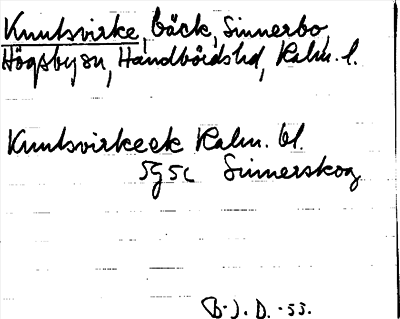 Knutsvirke, bäck, Sinnerbo,
Högsby sn, Handbördshd, Kalm. l.
Knutsvirkeek Kalm. bl.
5g5c Sinnerskog
B. J. D. -53.